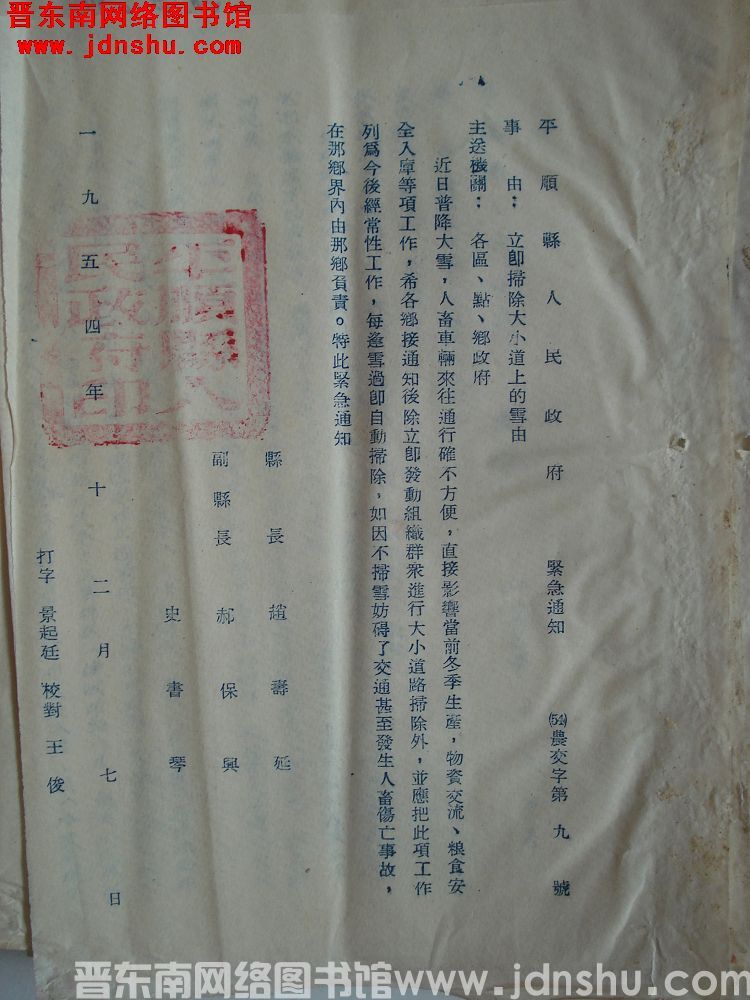 晋东南网络图书馆
www.jdnshu.com
平順縣人民政府 緊急通知 (54)農交字第九號
事由：立卽掃除大小道上的雪由
主送機關：各區、點、鄉政府
近日普降大雪，人畜車輛來往通行確不方便，直接影響當前冬季生產，物資交流、粮食安
全入庫等項工作，希各鄉接通知後除立卽發動組織群衆進行大小道路掃除外，並應把此項工作
列爲今後經常性工作，每逢雪過卽自動掃除，如因不掃雪妨碍了交通甚至發生人畜傷亡事故，
在那鄉界內由那鄉負責。特此緊急通知
縣長 趙壽延
副縣長 郝保興
史書琴
一九五四年十二月七日
平順縣人民政府印
打字 景起廷 校對 王俊
晋东南网络图书馆www.jdnshu.com